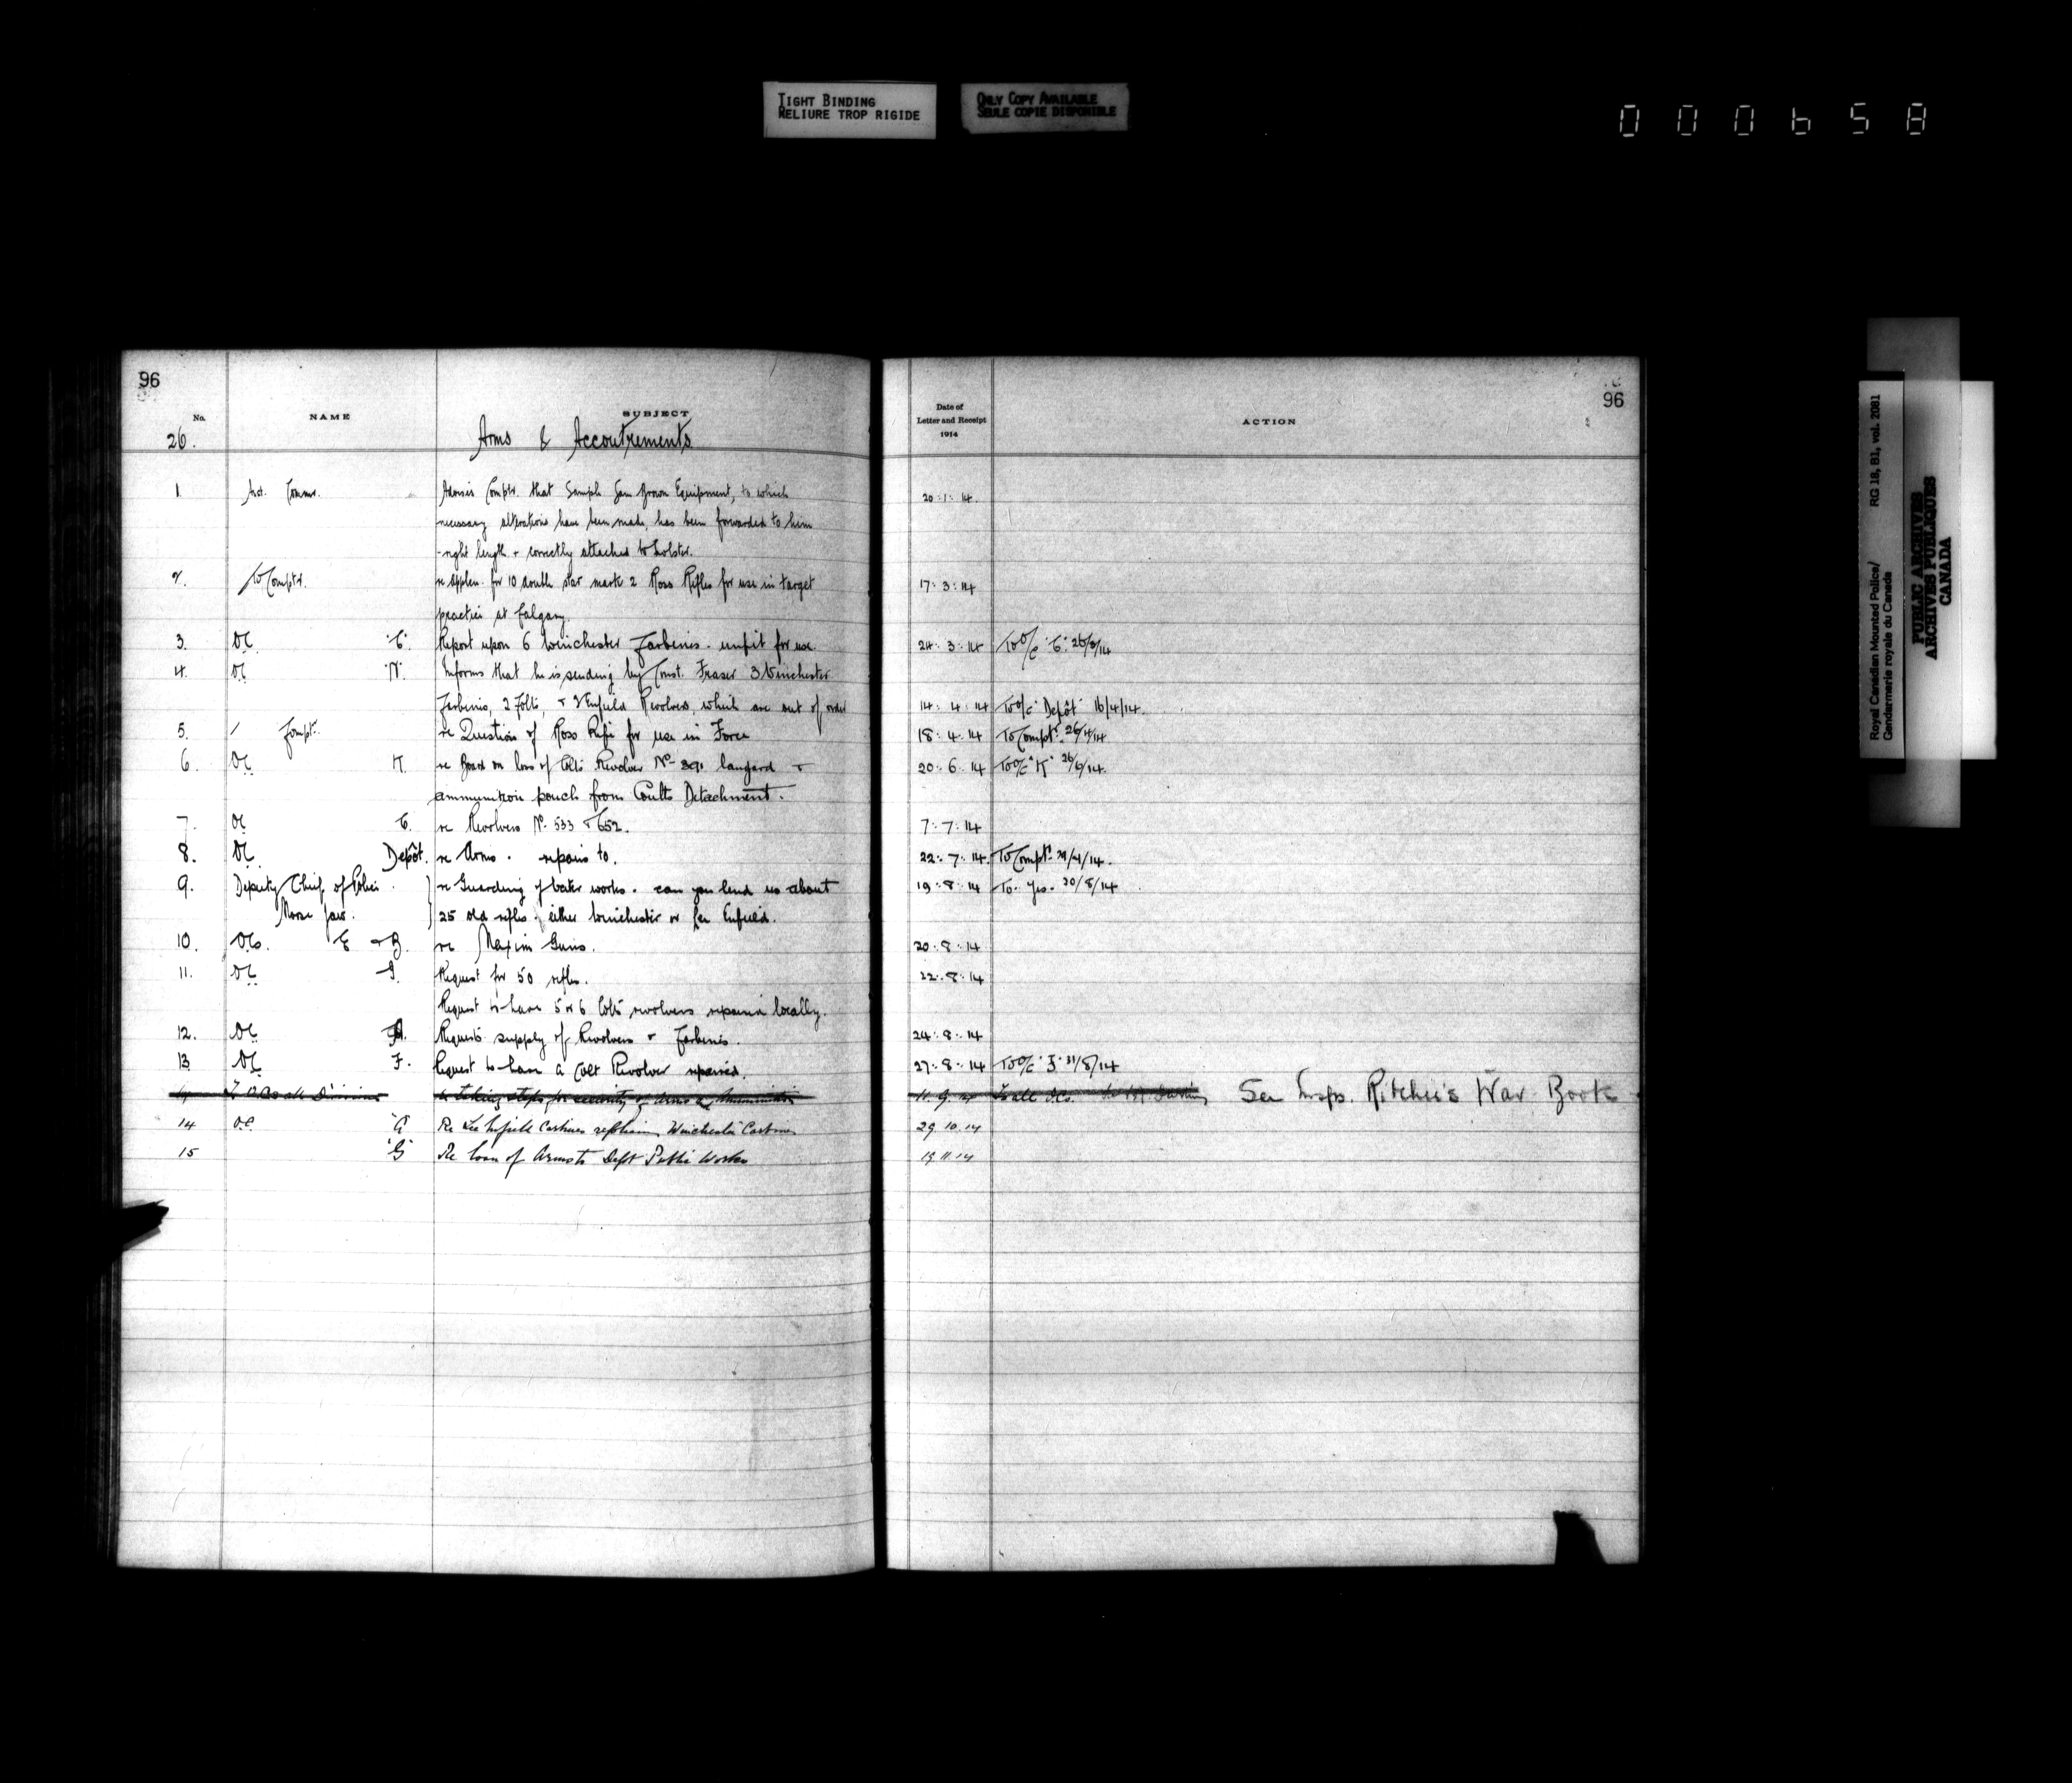 TIGHT BINDING
RELIURE TROP RIGIDE
ONLY COPY AVAILABLE
SEULE COPIE DISPONIBLE
000658
96
No. NAME SUBJECT
26. Arms & Accoutrements
Date of
Letter and Receipt
1914
ACTION
96
1. Asst. Commr. Advises Comptr. that Sample Sam Brown Equipment, to which 20.1.14.
necessary alterations have been made, has been forwarded to him
- right length & correctly attached to holster.
2. To Comptr. re Applcn. for 10 double star mark 2 Ross Rifles for use in target 17.3.14
practice at Calgary.
3. OC "C" Report upon 6 Winchester Carbines - unfit for use. 24.3.14 To O/C "C" 26/3/14
4. OC "N" Informs that he is sending by Const. Fraser 3 Winchester
Carbines, 2 Colts, & Enfield Revolvers, which are out of order 14.4.14 To O/C Depôt 16/4/14.
5. Compt. re Question of Ross Rifle for use in Force 18.4.14 To Compt. 26/4/14
6. OC K re Board on loss of Colts Revolver No. 391 lanyard &
ammunition pouch from Coutts Detachment. 20.6.14 To O/C "K" 26/6/14.
7. OC C. re Revolvers No. 533 & 652. 7.7.14
8. OC Depôt. re Arms. repairs to. 22.7.14. To Compt.
9. Deputy Chief of Police re Guarding of water works. can you lend us about 19.8.14 To. Yes. 20/8/14
Moose Jaw. 25 old rifles. either Winchester or Lee Enfield.
10. OCs. E & B. re Maxim Guns. 20.8.14
11. OC Request for 50 rifles. 22.8.14
Request to have 5 or 6 Colts revolvers repaired locally.
12. OC Requests supply of Revolvers & Carbines. 24.8.14
13 OC F. Request to have a Colt Revolver repaired. 27.8.14 To O/C F. 31/8/14
14 To OCs all Divisions re taking steps for security of Arms & Ammunition 11.9.14 To all OCs. See Insp. Ritchie's War Book
14 OC "A" Re Lee Enfield Carbines replacing Winchester Carbines 29.10.14
15 "G" Re loan of Arms to Dept Public Works 19.11.14
Royal Canadian Mounted Police/ RG 18, B1, vol. 2081
Gendarmerie royale du Canada
PUBLIC ARCHIVES
ARCHIVES PUBLIQUES
CANADA